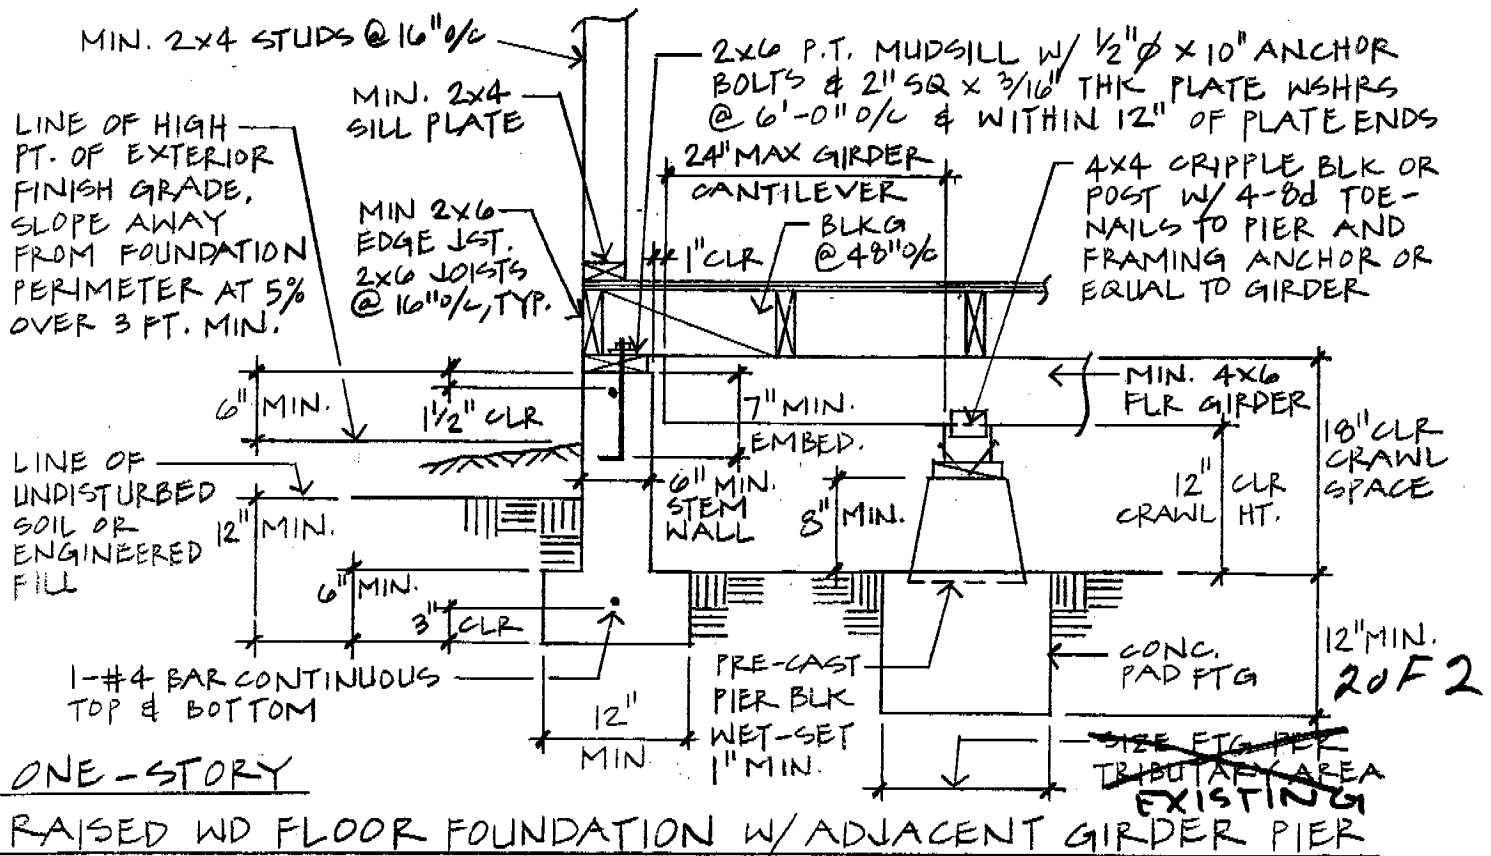 MIN. 2x4 STUDS @ 16" O/C
2x6 P.T. MUDSILL W/ 1/2"ϕ x 10" ANCHOR
BOLTS & 2" SQ x 3/16" THK PLATE WSHRS
@ 6'-0" O/C & WITHIN 12" OF PLATE ENDS
MIN. 2x4
SILL PLATE
LINE OF HIGH
PT. OF EXTERIOR
FINISH GRADE,
SLOPE AWAY
FROM FOUNDATION
PERIMETER AT 5%
OVER 3 FT. MIN.
24" MAX GIRDER
CANTILEVER
4x4 CRIPPLE BLK OR
POST W/ 4-8d TOE-
NAILS TO PIER AND
FRAMING ANCHOR OR
EQUAL TO GIRDER
MIN 2x6
EDGE JST.
2x6 JOISTS
@ 16" O/C, TYP.
BLKG
@ 48" O/C
1" CLR
6" MIN.
1 1/2" CLR
7" MIN.
EMBED.
MIN. 4x6
FLR GIRDER
18" CLR
CRAWL
SPACE
LINE OF
UNDISTURBED
SOIL OR
ENGINEERED
FILL
12" MIN.
6" MIN.
STEM
WALL
8" MIN.
12" CLR
CRAWL HT.
6" MIN.
3" CLR
1-#4 BAR CONTINUOUS
TOP & BOTTOM
12"
MIN
PRE-CAST
PIER BLK
WET-SET
1" MIN.
CONC.
PAD FTG
12" MIN.
2 OF 2
SIZE FTG PER
TRIBUTARY AREA
EXISTING
ONE-STORY
RAISED WD FLOOR FOUNDATION W/ ADJACENT GIRDER PIER